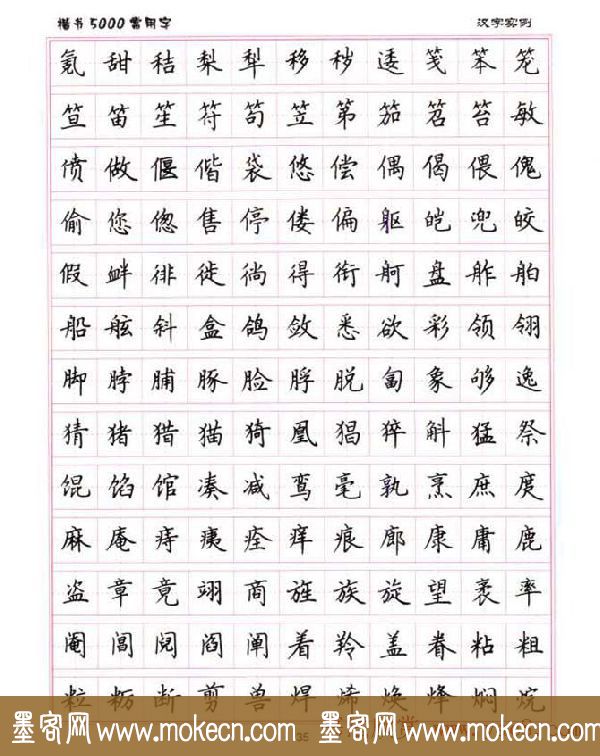 楷书5000常用字 汉字实例
氪甜秸梨犁移秽逶笺笨笼
笪笛笙符苟笠第笳笤笞敏
偾做偃偕袋悠偿偶偈偎傀
偷您偬售停偻偏躯皑兜皎
假衅徘徙徜得衔舸盘舴舶
船舷斜盒鸽敛悉欲彩领翎
脚脖脯豚脸脬脱匐象够逸
猜猪猎猫猗凰猖猝斛猛祭
馄馅馆凑减鸾毫孰烹庶庹
麻庵痔痍痊痒痕廊康庸鹿
盗章竟翊商旌族旋望袤率
阉阊阋阎阐着羚盖眷粘粗
粒粝断剪兽焊烯焕烽焖烷
墨客网 www.mokecn.com 墨客网 www.mokecn.com